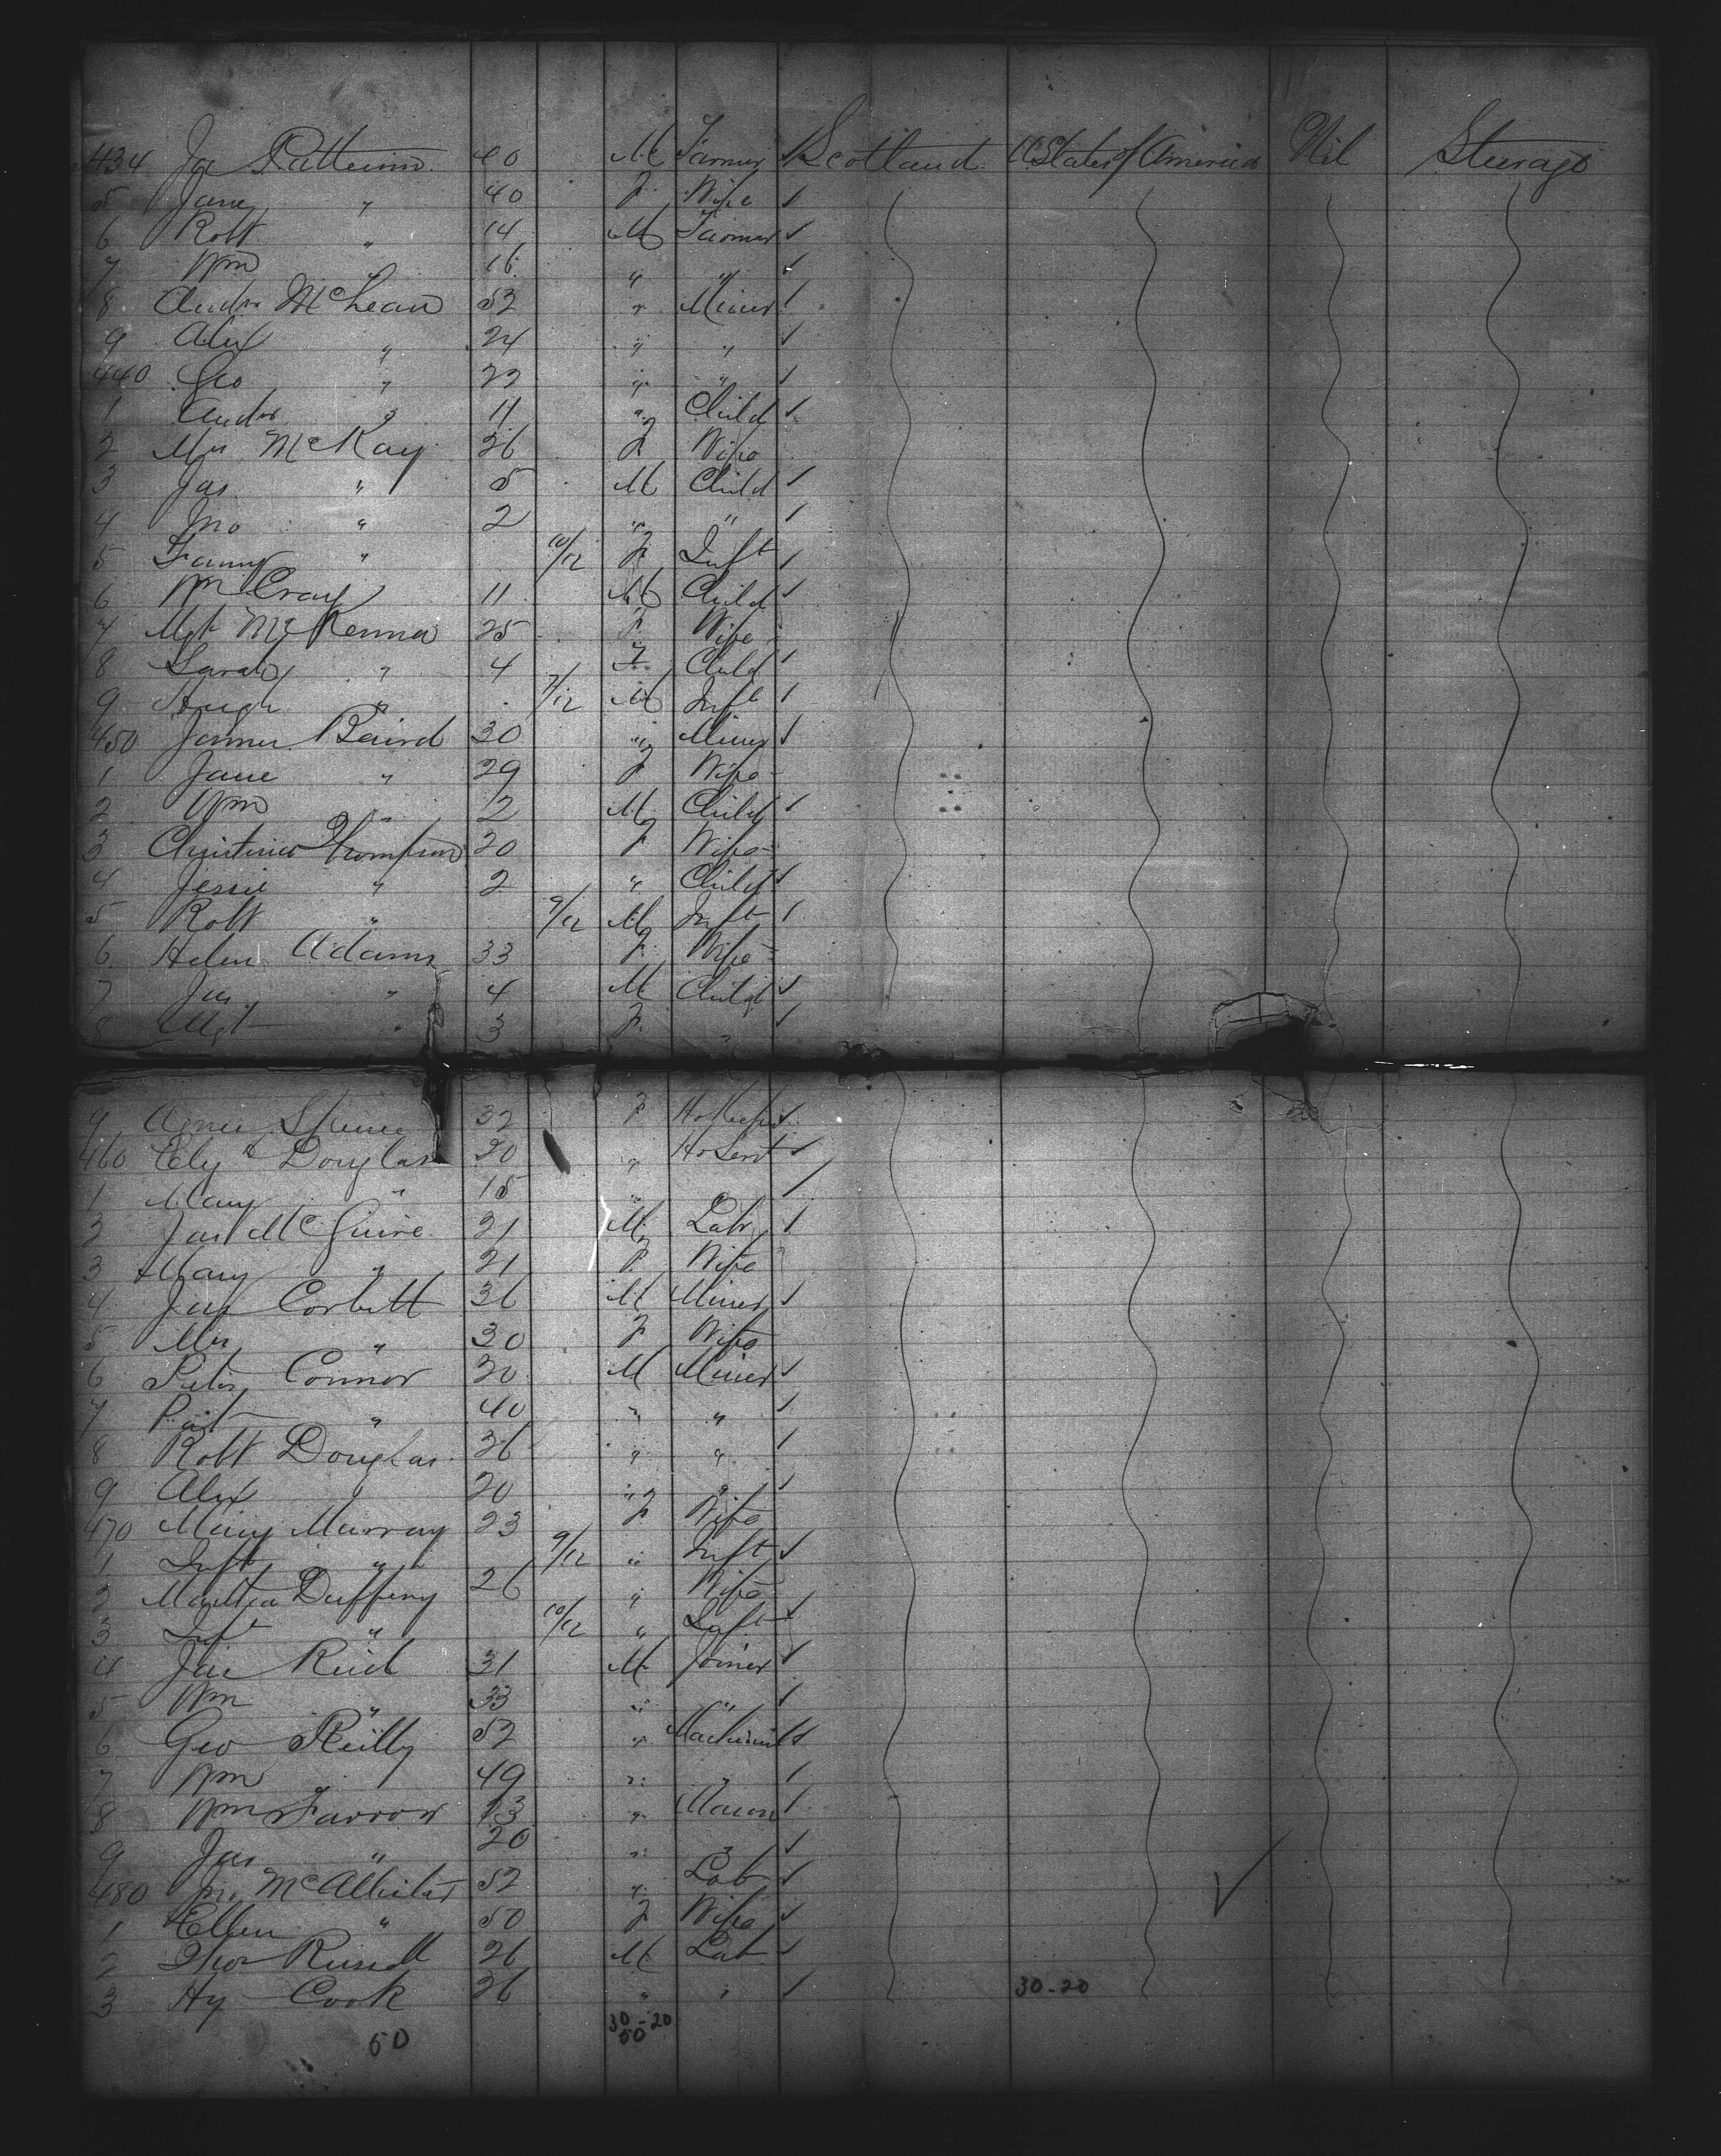 434 Jas Patterson 40 M Farmer ✓ Scotland U States of America Nil Steerage
5 Jane " 40 F Wife ✓
6 Robt " 14 M Farmer ✓
7 Wm " 16 " " ✓
8 Andw McLean 52 " Miner ✓
9 Alex " 24 " " ✓
440 Geo " 22 " " ✓
1 Andw " 11 " Child ✓
2 Mrs McKay 26 F Wife
3 Jas " 5 M Child ✓
4 Jno " 2 " " ✓
5 Fanny " 10/12 F Inft ✓
6 Wm Cray 11 M Child ✓
7 Mgt McKenna 25 F Wife
8 Sarah " 4 F Child ✓
9 Hugh " 7/12 M Inft ✓
450 James Baird 30 " Miner ✓
1 Jane " 29 F Wife
2 Wm " 2 M Child ✓
3 Christina Thompson 20 F Wife
4 Jessie " 2 " Child ✓
5 Robt " 9/12 M Inft ✓
6 Helen Adams 33 F Wife
7 Jas " 4 M Child ✓
8 Mgt " 3 F " ✓
9 Agnes Spence 32 F HoKeeper ✓
460 Elyth Douglas 20 " HoServt ✓
1 Mary " 15 " ✓
2 Jas McGuire 21 M Labr ✓
3 Mary " 21 F Wife
4 Jas Corbett 36 M Miner ✓
5 Mrs " 30 F Wife
6 Peter Connor 30 M Miner ✓
7 Pat " 40 " " ✓
8 Robt Douglas 36 " " ✓
9 Alex " 20 " " ✓
470 Mary Murray 23 F Wife
1 Inft " 9/12 " Inft ✓
2 Martha Duffeny 26 " Wife
3 Inft " 10/12 " Inft ✓
4 Jas Reid 31 M Joiner ✓
5 Wm " 33 " " ✓
6 Geo Reilly 52 " Machinist ✓
7 Wm 49 " " ✓
8 Wm Farrow 23 " Mason ✓
9 Jas " 20 " " ✓
480 Jno McAllister 52 " Labr ✓
1 Ellen " 50 F Wife ✓
2 Thos Russell 26 M Lab ✓
3 Hy Cook 26 " " ✓ 30-20
50 30-20
50